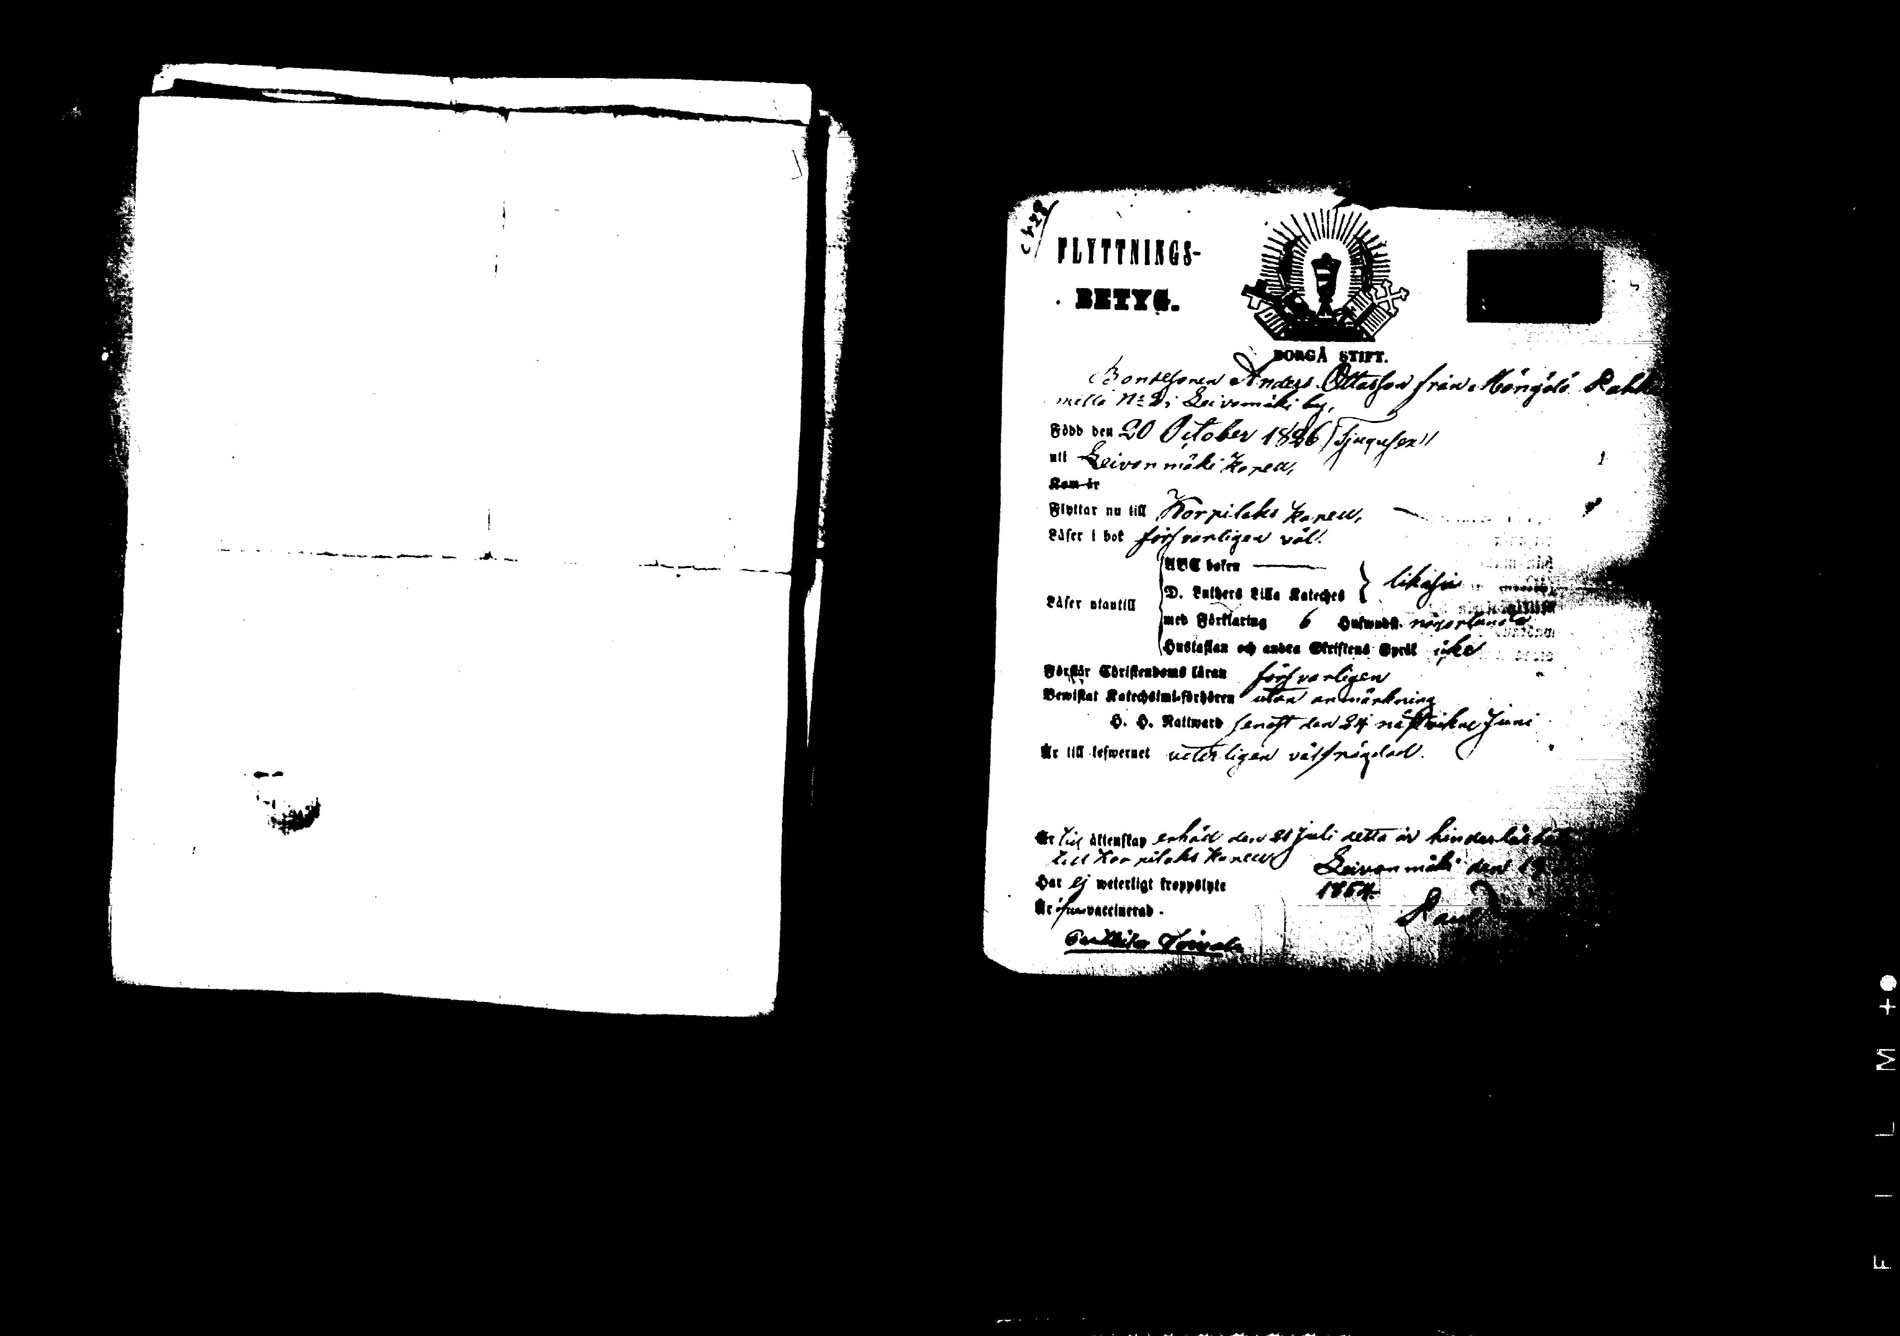 FLYTTNINGS-
BETYG.
BORGÅ STIFT.
Bondesonen Anders Ottasson från Höngälä
N:o 2 i Leivomäki by,
Född den 20 October 1826 (Tjugusex)
uti Leivonmäki kapell,
Kom år
Flyttar nu till Korpilaks kapell,
Läser i bok försvarligen väl.
ABC boken
D. Luthers Lilla Kateches } likaså
Läser utantill
med Förklaring 6 Hufwudst. någorlunda
Hustaflan och andra Skriftens Språk icke
Förstår Christendoms läran försvarligen
Bewistat Katechismi-förhören utan anmärkning
H. H. Nattward senast den 24 nästvikne Juni
Är till lefwernet veterligen välfrägdad.
Är till äktenskap erhöll den 21 Juli detta år hinderlöshet
till Korpilaks kapell Leivonmäki den
Har ej weterligt kroppslyte 1854.
Är vaccinerad.
FILM